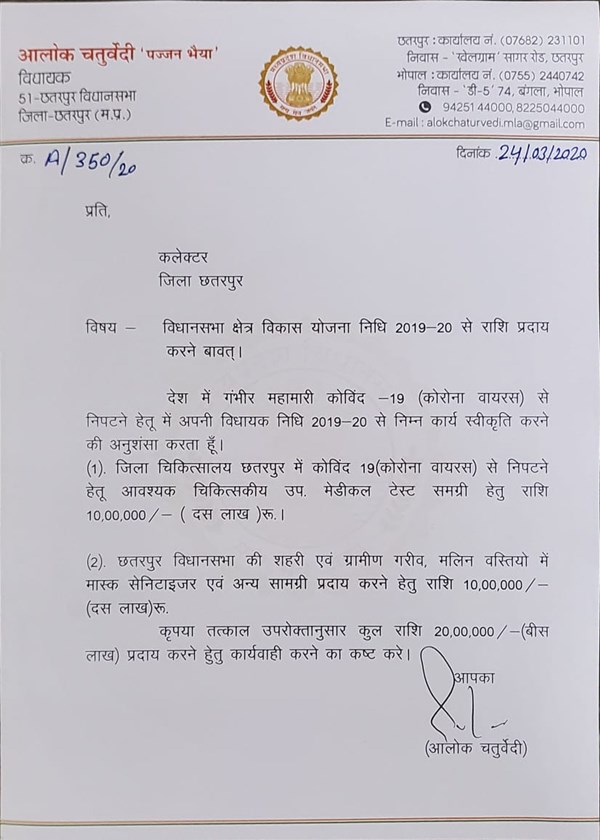 आलोक चतुर्वेदी 'पज्जन भैया'
विधायक
51-छतरपुर विधानसभा
जिला-छतरपुर (म.प्र.)
छतरपुर : कार्यालय नं. (07682) 231101
निवास - 'खेलग्राम' सागर रोड, छतरपुर
भोपाल : कार्यालय नं. (0755) 2440742
निवास - 'डी-5' 74, बंगला, भोपाल
94251 44000, 8225044000
E-mail : alokchaturvedi.mla@gmail.com
क्र. A/350/20
दिनांक 24/03/2020
प्रति,
कलेक्टर
जिला छतरपुर
विषय – विधानसभा क्षेत्र विकास योजना निधि 2019–20 से राशि प्रदाय
करने बावत्।
देश में गंभीर महामारी कोविंद –19 (कोरोना वायरस) से
निपटने हेतू में अपनी विधायक निधि 2019–20 से निम्न कार्य स्वीकृति करने
की अनुशंसा करता हूँ।
(1). जिला चिकित्सालय छतरपुर में कोविंद 19(कोरोना वायरस) से निपटने
हेतू आवश्यक चिकित्सकीय उप. मेडीकल टेस्ट समग्री हेतु राशि
10,00,000/– ( दस लाख )रू.।
(2). छतरपुर विधानसभा की शहरी एवं ग्रामीण गरीव, मलिन वस्तियो में
मास्क सेनिटाइजर एवं अन्य सामग्री प्रदाय करने हेतु राशि 10,00,000/–
(दस लाख)रू.
कृपया तत्काल उपरोक्तानुसार कुल राशि 20,00,000/–(बीस
लाख) प्रदाय करने हुेतु कार्यवाही करने का कष्ट करे।
आपका
(आलोक चतुर्वेदी)